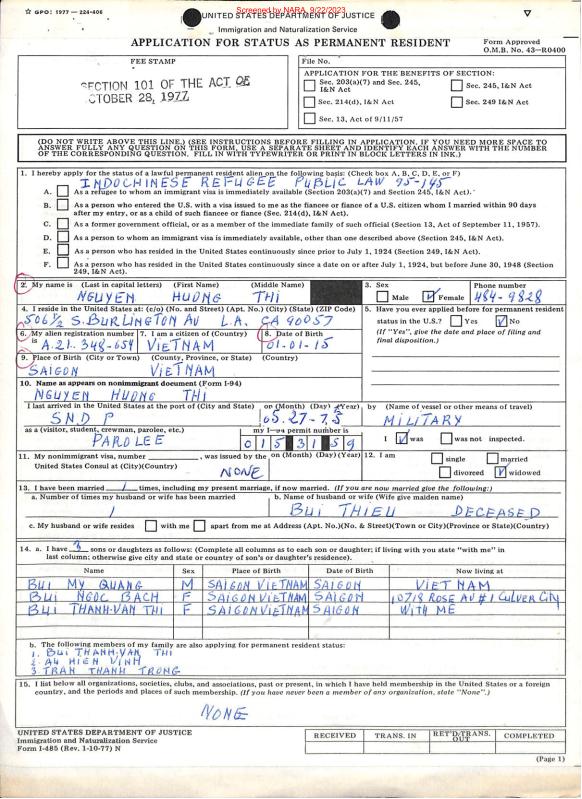 ☆ GPO : 1977 — 224-406
Screened by NARA, 9/22/2023
UNITED STATES DEPARTMENT OF JUSTICE
Immigration and Naturalization Service
APPLICATION FOR STATUS AS PERMANENT RESIDENT
Form Approved
O.M.B. No. 43—R0400
FEE STAMP
SECTION 101 OF THE ACT OF
OCTOBER 28, 1977
File No.
APPLICATION FOR THE BENEFITS OF SECTION:
Sec. 203(a)(7) and Sec. 245, I&N Act
Sec. 245, I&N Act
Sec. 214(d), I&N Act
Sec. 249 I&N Act
Sec. 13, Act of 9/11/57
(DO NOT WRITE ABOVE THIS LINE.) (SEE INSTRUCTIONS BEFORE FILLING IN APPLICATION. IF YOU NEED MORE SPACE TO
ANSWER FULLY ANY QUESTION ON THIS FORM, USE A SEPARATE SHEET AND IDENTIFY EACH ANSWER WITH THE NUMBER
OF THE CORRESPONDING QUESTION. FILL IN WITH TYPEWRITER OR PRINT IN BLOCK LETTERS IN INK.)
1. I hereby apply for the status of a lawful permanent resident alien on the following basis: (Check box A, B, C, D, E, or F)
INDOCHINESE REFUGEE PUBLIC LAW 95-145
A. As a refugee to whom an immigrant visa is immediately available (Section 203(a)(7) and Section 245, I&N Act).
B. As a person who entered the U.S. with a visa issued to me as the fiance or fiancee of a U.S. citizen whom I married within 90 days
after my entry, or as a child of such fiancee or fiance (Sec. 214(d), I&N Act).
C. As a former government official, or as a member of the immediate family of such official (Section 13, Act of September 11, 1957).
D. As a person to whom an immigrant visa is immediately available, other than one described above (Section 245, I&N Act).
E. As a person who has resided in the United States continuously since prior to July 1, 1924 (Section 249, I&N Act).
F. As a person who has resided in the United States continuously since a date on or after July 1, 1924, but before June 30, 1948 (Section
249, I&N Act).
2. My name is (Last in capital letters) (First Name) (Middle Name)
NGUYEN HUONG THI
3. Sex
Male Female
Phone number
484-9828
4. I reside in the United States at: (c/o) (No. and Street) (Apt. No.) (City) (State) (ZIP Code)
506 1/2 S. BURLINGTON AV L.A. CA 90057
5. Have you ever applied for permanent resident
status in the U.S.? Yes No
(If "Yes", give the date and place of filing and
final disposition.)
6. My alien registration number is
A.21.348-654
7. I am a citizen of (Country)
VIETNAM
8. Date of Birth
01-01-15
9. Place of Birth (City or Town) (County, Province, or State) (Country)
SAIGON VIETNAM
10. Name as appears on nonimmigrant document (Form I-94)
NGUYEN HUONG THI
I last arrived in the United States at the port of (City and State)
on (Month) (Day) (Year)
05.27-75
by (Name of vessel or other means of travel)
MILITARY
as a (visitor, student, crewman, parolee, etc.)
PAROLEE
my I-94 permit number is
I was was not inspected.
11. My nonimmigrant visa, number , was issued by the
United States Consul at (City)(Country)
on (Month) (Day) (Year)
NONE
12. I am
single married
divorced widowed
13. I have been married 1 times, including my present marriage, if now married. (If you are now married give the following:)
a. Number of times my husband or wife has been married
1
b. Name of husband or wife (Wife give maiden name)
BUI THIEU DECEASED
c. My husband or wife resides with me apart from me at Address (Apt. No.)(No. & Street)(Town or City)(Province or State)(Country)
14. a. I have 3 sons or daughters as follows: (Complete all columns as to each son or daughter; if living with you state "with me" in
last column; otherwise give city and state or country of son's or daughter's residence).
Name Sex Place of Birth Date of Birth Now living at
BUI MY QUANG M SAIGON VIETNAM SAIGON VIETNAM
BUI NGOC BACH F SAIGON VIETNAM SAIGON 10718 ROSE AV #1 CULVER CITY
BUI THANH-VAN THI F SAIGON VIETNAM SAIGON WITH ME
b. The following members of my family are also applying for permanent resident status:
1. BUI THANH-VAN THI
2. AU HIEN VINH
3. TRAN THANH TRONG
15. I list below all organizations, societies, clubs, and associations, past or present, in which I have held membership in the United States or a foreign
country, and the periods and places of such membership. (If you have never been a member of any organization, state "None".)
NONE
UNITED STATES DEPARTMENT OF JUSTICE
Immigration and Naturalization Service
Form I-485 (Rev. 1-10-77) N
RECEIVED TRANS. IN RET'D/TRANS. OUT COMPLETED
(Page 1)